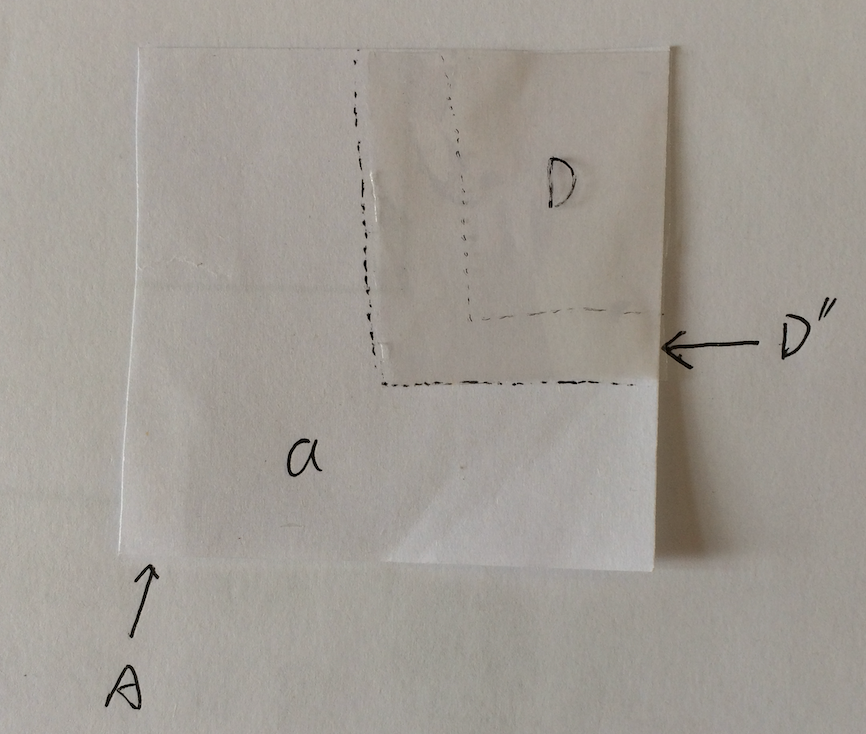 D
D″
a
A